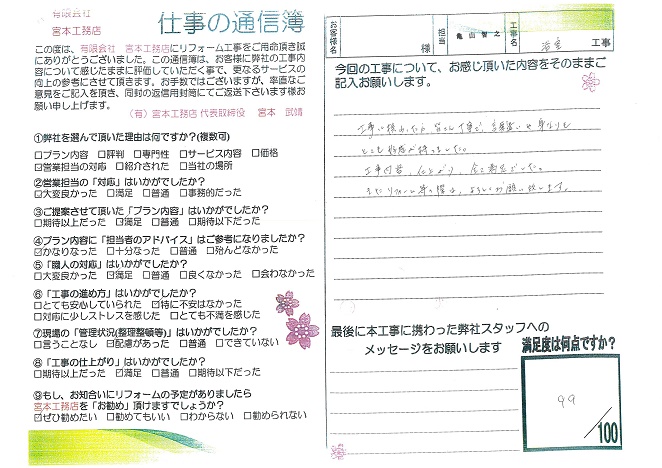 有限会社
宮本工務店
仕事の通信簿
この度は、有限会社 宮本工務店にリフォーム工事をご用命頂き誠
にありがとうございました。この通信簿は、お客様に弊社の工事内
容について感じたままに評価していただく事で、更なるサービスの
向上の参考にさせて頂きます。お手数ではございますが、率直なご
意見をご記入を頂き、同封の返信用封筒にてご返送下さいます様お
願い申し上げます。
（有）宮本工務店 代表取締役 宮本 武靖
①弊社を選んで頂いた理由は何ですか？(複数可)
□プラン内容 □評判 □専門性 □サービス内容 □価格
☑営業担当の対応 □紹介された □当社の場所
②営業担当の「対応」はいかがでしたか？
☑大変良かった □満足 □普通 □事務的だった
③ご提案させて頂いた「プラン内容」はいかがでしたか？
□期待以上だった ☑満足 □普通 □期待以下だった
④プラン内容に「担当者のアドバイス」はご参考になりましたか？
☑かなりなった □十分なった □普通 □殆んどなかった
⑤「職人の対応」はいかがでしたか？
□大変良かった ☑満足 □普通 □良くなかった □会わなかった
⑥「工事の進め方」はいかがでしたか？
□とても安心していられた ☑特に不安はなかった
□対応に少しストレスを感じた □とても不満を感じた
⑦現場の「管理状況(整理整頓等)」はいかがでしたか？
□言うことなし ☑配慮があった □普通 □できていない
⑧「工事の仕上がり」はいかがでしたか？
□期待以上だった ☑満足 □普通 □期待以下だった
⑨もし、お知合いにリフォームの予定がありましたら
宮本工務店を「お勧め」頂けますでしょうか？
☑ぜひ勧めたい □勧めてもいい □わからない □勧められない
お客様名 様 担当 亀山 智之 工事名 浴室 工事
今回の工事について、お感じ頂いた内容をそのままご
記入お願いします。
とても好感が持てました。
またリフォーム等の際は、よろしくお願い致します。
最後に本工事に携わった弊社スタッフへの
メッセージをお願いします
満足度は何点ですか？
99
/100